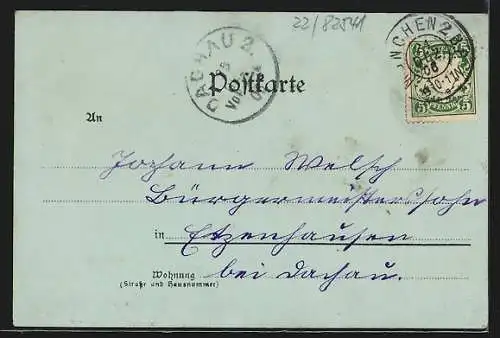 22/82541
MÜNCHEN 2 B.
DACHAU 2.
Postkarte
5 PFENNIG 5
An
Johann Welsch
Bürgermeisterssohn
in Etzenhausen
Wohnung bei Dachau.
(Straße und Hausnummer)